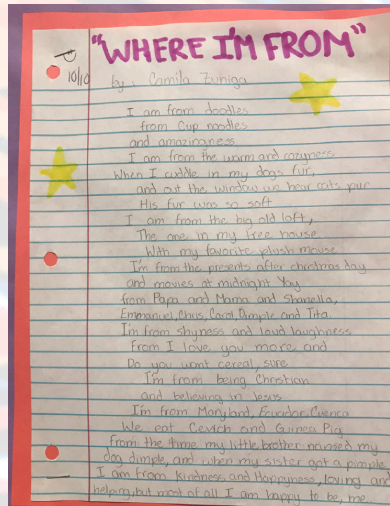 "WHERE I'M FROM"
10/10
by: Camila Zuniga
I am from doodles
from Cup noodles
and amazingness
I am from the warm and cozyness
When I cuddle in my dogs fur,
and out the window we hear cats purr
His fur was so soft
I am from the big old loft,
The one in my tree house
With my favorite plush mouse
I'm from the presents after christmas day
and movies at midnight Yay
from Papa and Mama and Shanella,
Emmanuel, Chris, Carol, Dimple and Tita.
I'm from shyness and loud laughness
From I love you more and
Do you want cereal, sure
I'm from being Christian
and believing in Jesus
I'm from Maryland, Ecuador, Cuenca
We eat Cevich and Guinea Pig
From the time my little brother named my
dog dimple, and when my sister got a pimple
I am from Kindness and Happyness, loving and
helping, but most of all I am happy to be, me